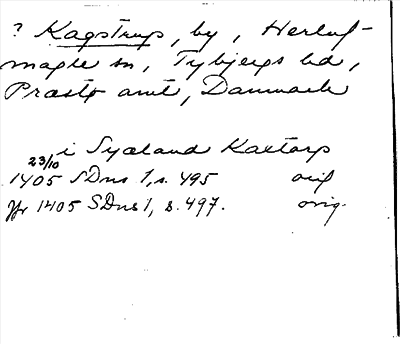 ? Kagstrup, by, Herluf-
magle sn, Tybjergs hd,
Præstø amt, Danmark
i Syæland Kaxtorp
23/10
1405 SDns 1, s. 495 orig
Yr 1405 SDns 1, s. 497. orig.